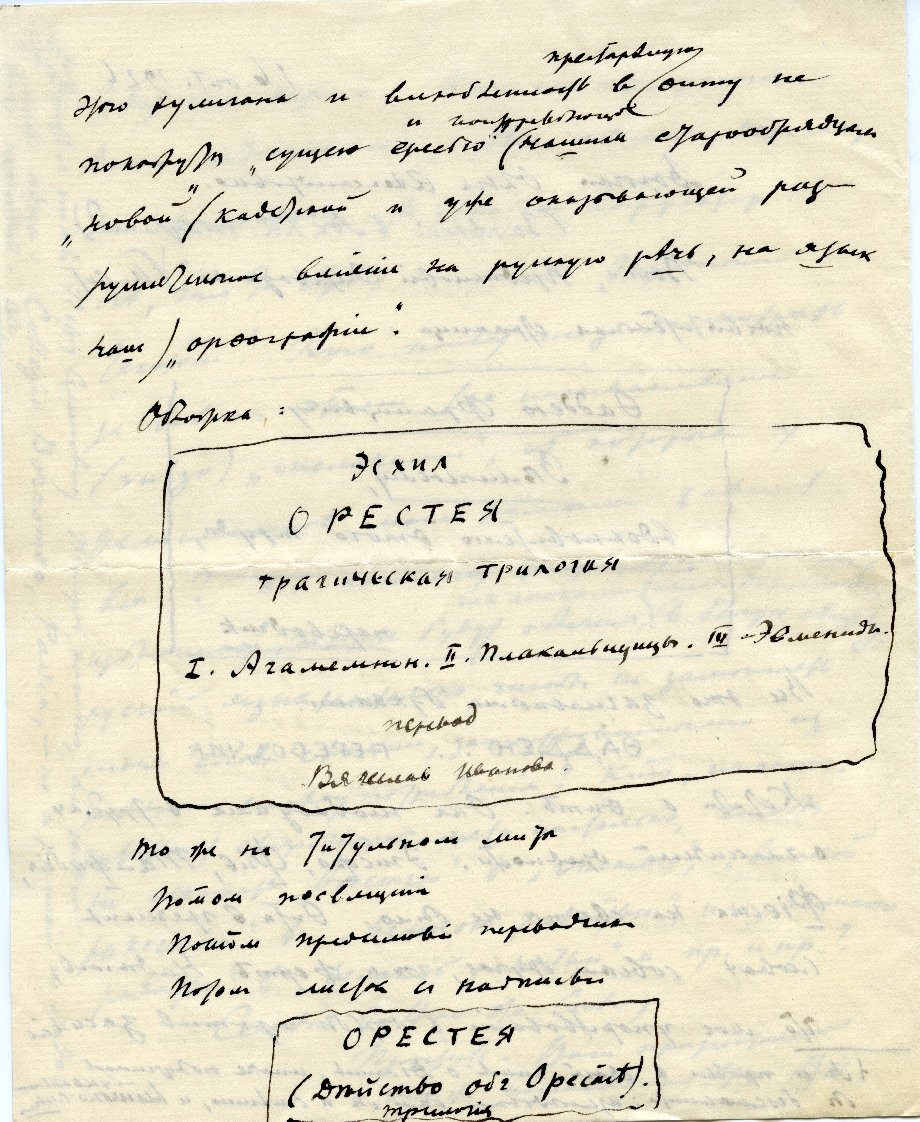 престарѣлую
этого хулигана и влюбленность в фиту не
и поощряющую
пожертвую „сущею ересью" (нашим старообрядцам
„новой" (кадетской и уже оказывающей раз-
рушительное вліяніе на русскую рѣчь, на язык
наш) „орѳографіи".
Обложка:
ЭСХИЛ
ОРЕСТЕЯ
трагическая трилогия
I. Агамемнон. II. Плакальщицы. III Эвмениды.
перевод
Вячеслава Иванова.
То же на титульном листѣ
Потом посвященіе
Потом предисловіе переводчика
Потом листок с надписью
ОРЕСТЕЯ
(Дѣйство об Орестѣ).
трилогія